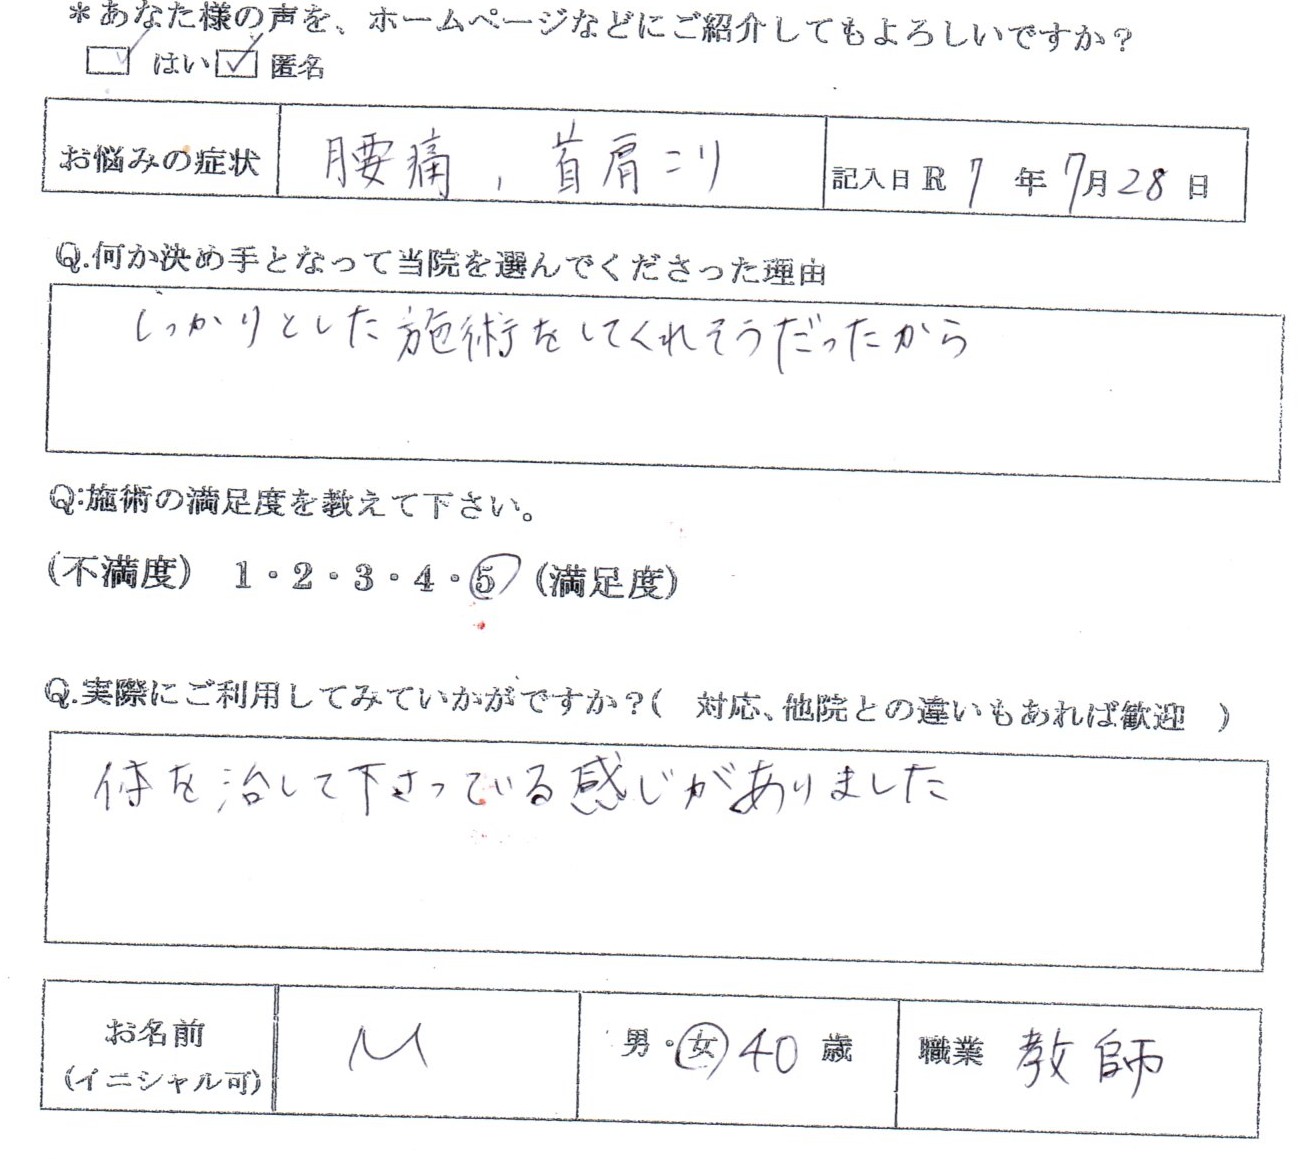 *あなた様の声を、ホームページなどにご紹介してもよろしいですか？
はい 匿名
お悩みの症状 腰痛, 首肩こり 記入日 R 7 年 7月 28 日
Q.何か決め手となって当院を選んでくださった理由
しっかりとした施術をしてくれそうだったから
Q:施術の満足度を教えて下さい。
(不満度) 1・2・3・4・5 (満足度)
Q.実際にご利用してみていかがですか？( 対応、他院との違いもあれば歓迎 )
体を治して下さっている感じがありました
お名前 M 男・女 40 歳 職業 教師
(イニシャル可)